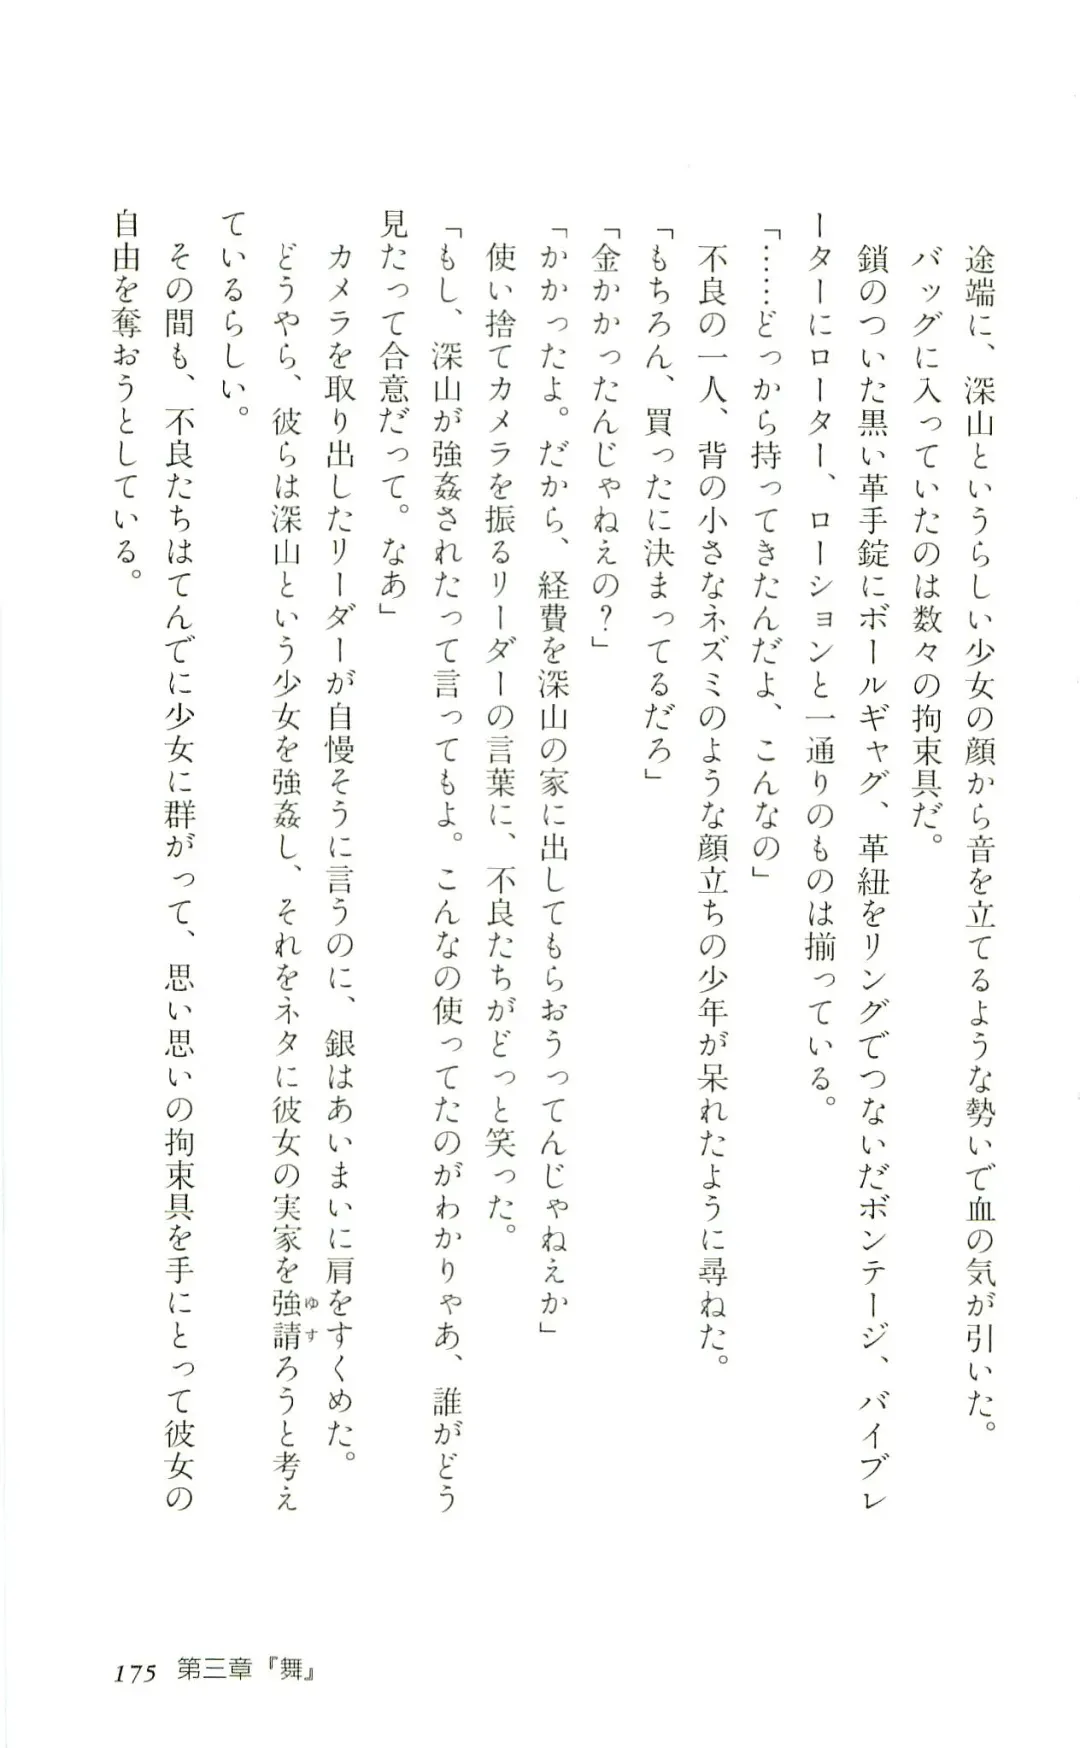 途端に、深山というらしい少女の顔から音を立てるような勢いで血の気が引いた。
バッグに入っていたのは数々の拘束具だ。
鎖のついた黒い革手錠にボールギャグ、革紐をリングでつないだボンテージ、バイブレ
ーターにローター、ローションと一通りのものは揃っている。
「……どっから持ってきたんだよ、こんなの」
不良の一人、背の小さなネズミのような顔立ちの少年が呆れたように尋ねた。
「もちろん、買ったに決まってるだろ」
「金かかったんじゃねえの?」
「かかったよ。だから、経費を深山の家に出してもらおうってんじゃねえか」
使い捨てカメラを振るリーダーの言葉に、不良たちがどっと笑った。
「もし、深山が強姦されたって言ってもよ。こんなの使ってたのがわかりゃあ、誰がどう
見たって合意だって。なあ」
カメラを取り出したリーダーが自慢そうに言うのに、銀はあいまいに肩をすくめた。
どうやら、彼らは深山という少女を強姦し、それをネタに彼女の実家を強請ろうと考え
ゆす
ているらしい。
その間も、不良たちはてんでに少女に群がって、思い思いの拘束具を手にとって彼女の
自由を奪おうとしている。
175 第三章『舞』